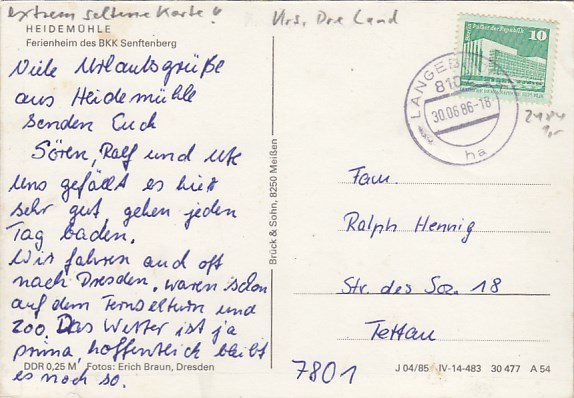 extrem seltene Karte!
Krs. Dre Land
HEIDEMÜHLE
Ferienheim des BKK Senftenberg
Viele Urlaubsgrüße
aus Heidemühle
senden Euch
Sören, Ralf und Ute
Uns gefällt es hier
sehr gut, gehen jeden
Tag baden.
Wir fahren auch oft
nach Dresden, waren schon
auf dem Fernsehturm und
Zoo. Das Wetter ist ja
prima, hoffentlich bleibt
es noch so.
DDR 0,25 M Fotos: Erich Braun, Dresden
Brück & Sohn, 8250 Meißen
10
Palast der Republik
LANGEB
810
30.06.86-18
ha
2484
1,-
Fam.
Ralph Hennig
Str. des Soz. 18
Tettau
7801
J 04/85 IV-14-483 30 477 A 54